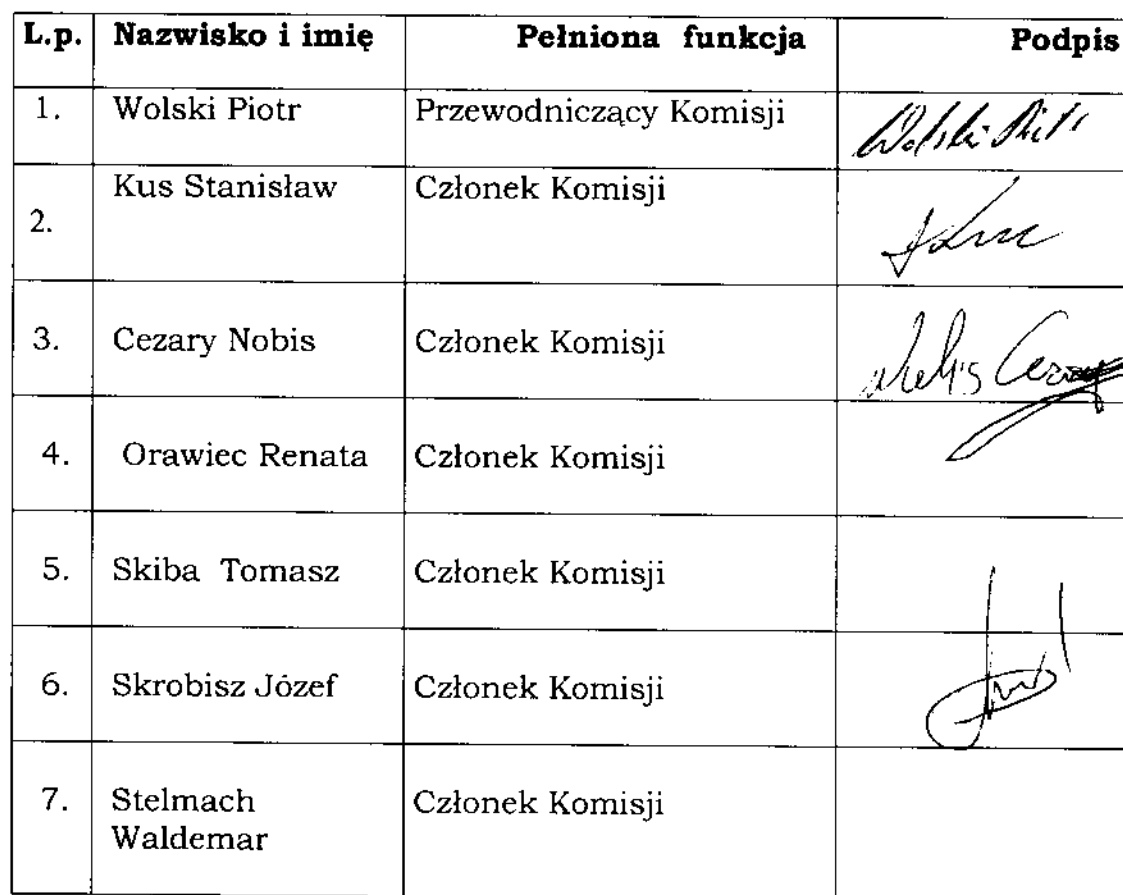 L.p. Nazwisko i imię Pełniona funkcja Podpis
1. Wolski Piotr Przewodniczący Komisji Wolski
Kus Stanisław Członek Komisji
2.
3. Cezary Nobis Członek Komisji
4. Orawiec Renata Członek Komisji
5. Skiba Tomasz Członek Komisji
6. Skrobisz Józef Członek Komisji
7. Stelmach Członek Komisji
Waldemar